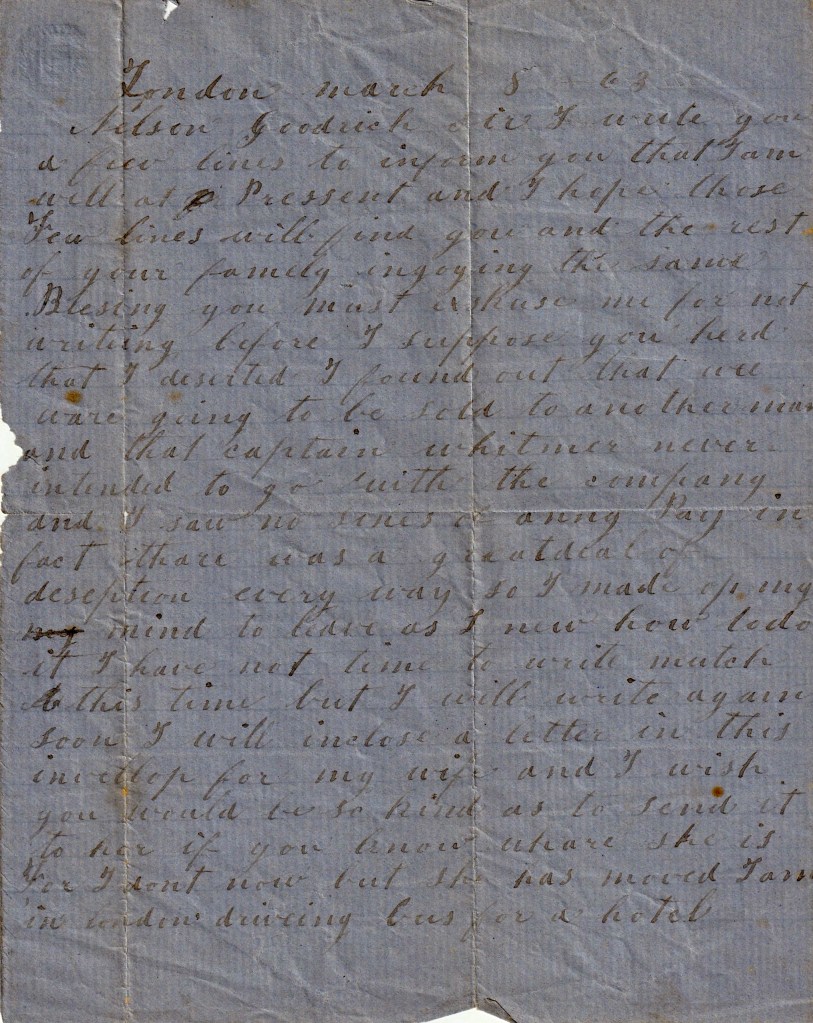 London march 8 - 63
Nelson Goodrich Sir I write you
a few lines to inform you that I am
will at Pressent and I hope those
Few lines will find you and the rest
of your famely ingoying the same
Blesing you must exkuse me for not
writing before I suppose you herd
that I deserted I found out that wee
ware going to be sold to another man
and that captain whitmer never
intended to go with the company
and I saw no sines of anny Pay in
fact thare was a greatdeal of
deseption every way so I made op my
my mind to leave as I new how todo
it I have not time to write mutch
this time but I will write again
soon I will inclose a letter in this
invellop for my wife and I wish
you would be so kind as to send it
to her if you know whare she is
For I dont now but she has moved I am
in london driveing bus for a hotel